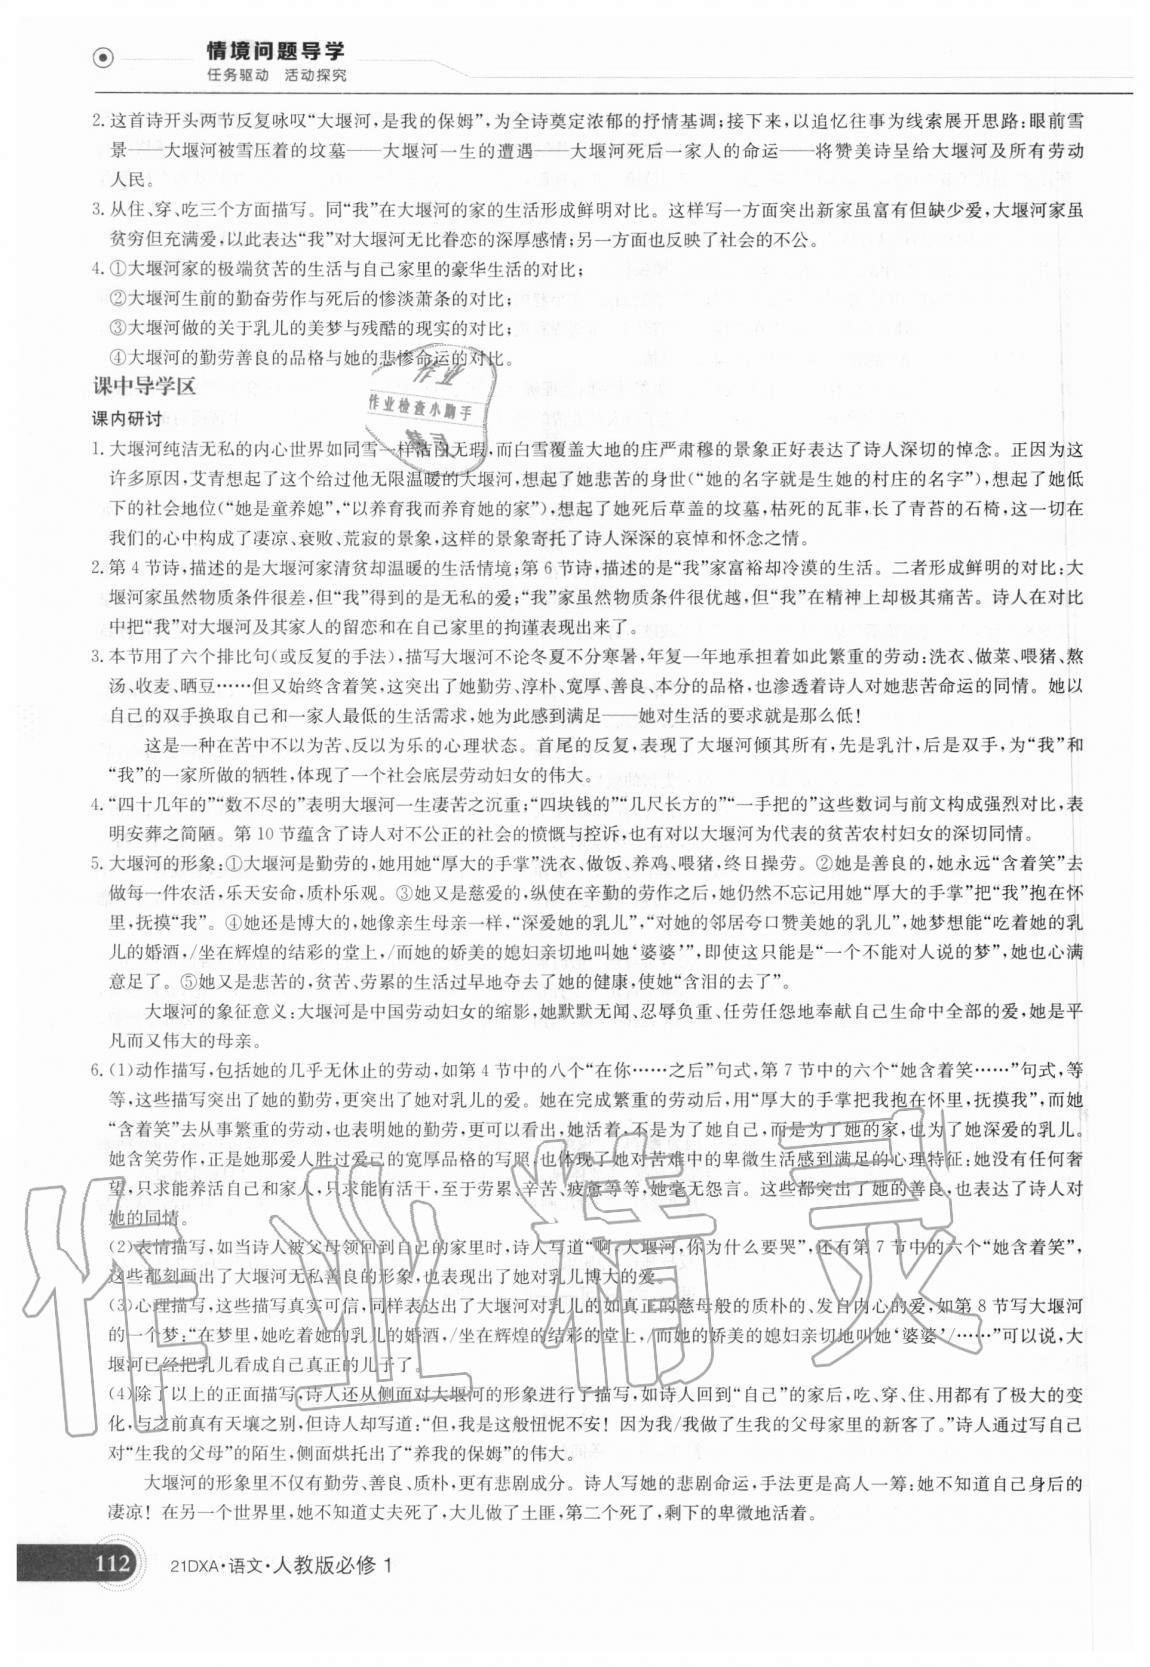 情境问题导学
任务驱动 活动探究
2. 这首诗开头两节反复咏叹“大堰河,是我的保姆”,为全诗奠定浓郁的抒情基调;接下来,以追忆往事为线索展开思路:眼前雪
景——大堰河被雪压着的坟墓——大堰河一生的遭遇——大堰河死后一家人的命运——将赞美诗呈给大堰河及所有劳动
人民。
3. 从住、穿、吃三个方面描写。同“我”在大堰河的家的生活形成鲜明对比。这样写一方面突出新家虽富有但缺少爱,大堰河家虽
贫穷但充满爱,以此表达“我”对大堰河无比眷恋的深厚感情;另一方面也反映了社会的不公。
4. ①大堰河家的极端贫苦的生活与自己家里的豪华生活的对比;
②大堰河生前的勤奋劳作与死后的惨淡萧条的对比;
③大堰河做的关于乳儿的美梦与残酷的现实的对比;
④大堰河的勤劳善良的品格与她的悲惨命运的对比。
课中导学区
作业
作业检查小助手
精灵
课内研讨
1. 大堰河纯洁无私的内心世界如同雪一样洁白无瑕,而白雪覆盖大地的庄严肃穆的景象正好表达了诗人深切的悼念。正因为这
许多原因,艾青想起了这个给过他无限温暖的大堰河,想起了她悲苦的身世(“她的名字就是生她的村庄的名字”),想起了她低
下的社会地位(“她是童养媳”,“以养育我而养育她的家”),想起了她死后草盖的坟墓,枯死的瓦菲,长了青苔的石椅,这一切在
我们的心中构成了凄凉、衰败、荒寂的景象,这样的景象寄托了诗人深深的哀悼和怀念之情。
2. 第 4 节诗,描述的是大堰河家清贫却温暖的生活情境;第 6 节诗,描述的是“我”家富裕却冷漠的生活。二者形成鲜明的对比:大
堰河家虽然物质条件很差,但“我”得到的是无私的爱;“我”家虽然物质条件很优越,但“我”在精神上却极其痛苦。诗人在对比
中把“我”对大堰河及其家人的留恋和在自己家里的拘谨表现出来了。
3. 本节用了六个排比句(或反复的手法),描写大堰河不论冬夏不分寒暑,年复一年地承担着如此繁重的劳动:洗衣、做菜、喂猪、熬
汤、收麦、晒豆……但又始终含着笑,这突出了她勤劳、淳朴、宽厚、善良、本分的品格,也渗透着诗人对她悲苦命运的同情。她以
自己的双手换取自己和一家人最低的生活需求,她为此感到满足——她对生活的要求就是那么低!
这是一种在苦中不以为苦、反以为乐的心理状态。首尾的反复,表现了大堰河倾其所有,先是乳汁,后是双手,为“我”和
“我”的一家所做的牺牲,体现了一个社会底层劳动妇女的伟大。
4. “四十几年的”“数不尽的”表明大堰河一生凄苦之沉重;“四块钱的”“几尺长方的”“一手把的”这些数词与前文构成强烈对比,表
明安葬之简陋。第 10 节蕴含了诗人对不公正的社会的愤慨与控诉,也有对以大堰河为代表的贫苦农村妇女的深切同情。
5. 大堰河的形象:①大堰河是勤劳的,她用她“厚大的手掌”洗衣、做饭、养鸡、喂猪,终日操劳。②她是善良的,她永远“含着笑”去
做每一件农活,乐天安命,质朴乐观。③她又是慈爱的,纵使在辛勤的劳作之后,她仍然不忘记用她“厚大的手掌”把“我”抱在怀
里,抚摸“我”。④她还是博大的,她像亲生母亲一样,“深爱她的乳儿”,“对她的邻居夸口赞美她的乳儿”,她梦想能“吃着她的乳
儿的婚酒,/坐在辉煌的结彩的堂上,/而她的娇美的媳妇亲切地叫她‘婆婆’”,即使这只能是“一个不能对人说的梦”,她也心满
意足了。⑤她又是悲苦的,贫苦、劳累的生活过早地夺去了她的健康,使她“含泪的去了”。
大堰河的象征意义:大堰河是中国劳动妇女的缩影,她默默无闻、忍辱负重、任劳任怨地奉献自己生命中全部的爱,她是平
凡而又伟大的母亲。
6. (1)动作描写,包括她的几乎无休止的劳动,如第 4 节中的八个“在你……之后”句式,第 7 节中的六个“她含着笑……”句式,等
等,这些描写突出了她的勤劳,更突出了她对乳儿的爱。她在完成繁重的劳动后,用“厚大的手掌把我抱在怀里,抚摸我”,而她
“含着笑”去从事繁重的劳动,也表明她的勤劳,更可以看出,她活着,不是为了她自己,而是为了她的家,也为了她深爱的乳儿。
她含笑劳作,正是她那爱人胜过爱己的宽厚品格的写照,也体现了她对苦难中的卑微生活感到满足的心理特征:她没有任何奢
望,只求能养活自己和家人,只求能有活干,至于劳累、辛苦、疲惫等等,她毫无怨言。这些都突出了她的善良,也表达了诗人对
她的同情。
(2)表情描写,如当诗人被父母领回到自己的家里时,诗人写道“啊,大堰河,你为什么要哭”,还有第 7 节中的六个“她含着笑”,
这些都刻画出了大堰河无私善良的形象,也表现出了她对乳儿博大的爱。
(3)心理描写,这些描写真实可信,同样表达出了大堰河对乳儿的如真正的慈母般的质朴的、发自内心的爱,如第 8 节写大堰河
的一个梦:“在梦里,她吃着她的乳儿的婚酒,/坐在辉煌的结彩的堂上,/而她的娇美的媳妇亲切地叫她‘婆婆’/……”可以说,大
堰河已经把乳儿看成自己真正的儿子了。
(4)除了以上的正面描写,诗人还从侧面对大堰河的形象进行了描写,如诗人回到“自己”的家后,吃、穿、住、用都有了极大的变
化,与之前真有天壤之别,但诗人却写道:“但,我是这般忸怩不安!因为我/我做了生我的父母家里的新客了。”诗人通过写自己
对“生我的父母”的陌生,侧面烘托出了“养我的保姆”的伟大。
大堰河的形象里不仅有勤劳、善良、质朴,更有悲剧成分。诗人写她的悲剧命运,手法更是高人一筹:她不知道自己身后的
凄凉!在另一个世界里,她不知道丈夫死了,大儿做了土匪,第二个死了,剩下的卑微地活着。
作业精灵
112 21DXA·语文·人教版必修 1